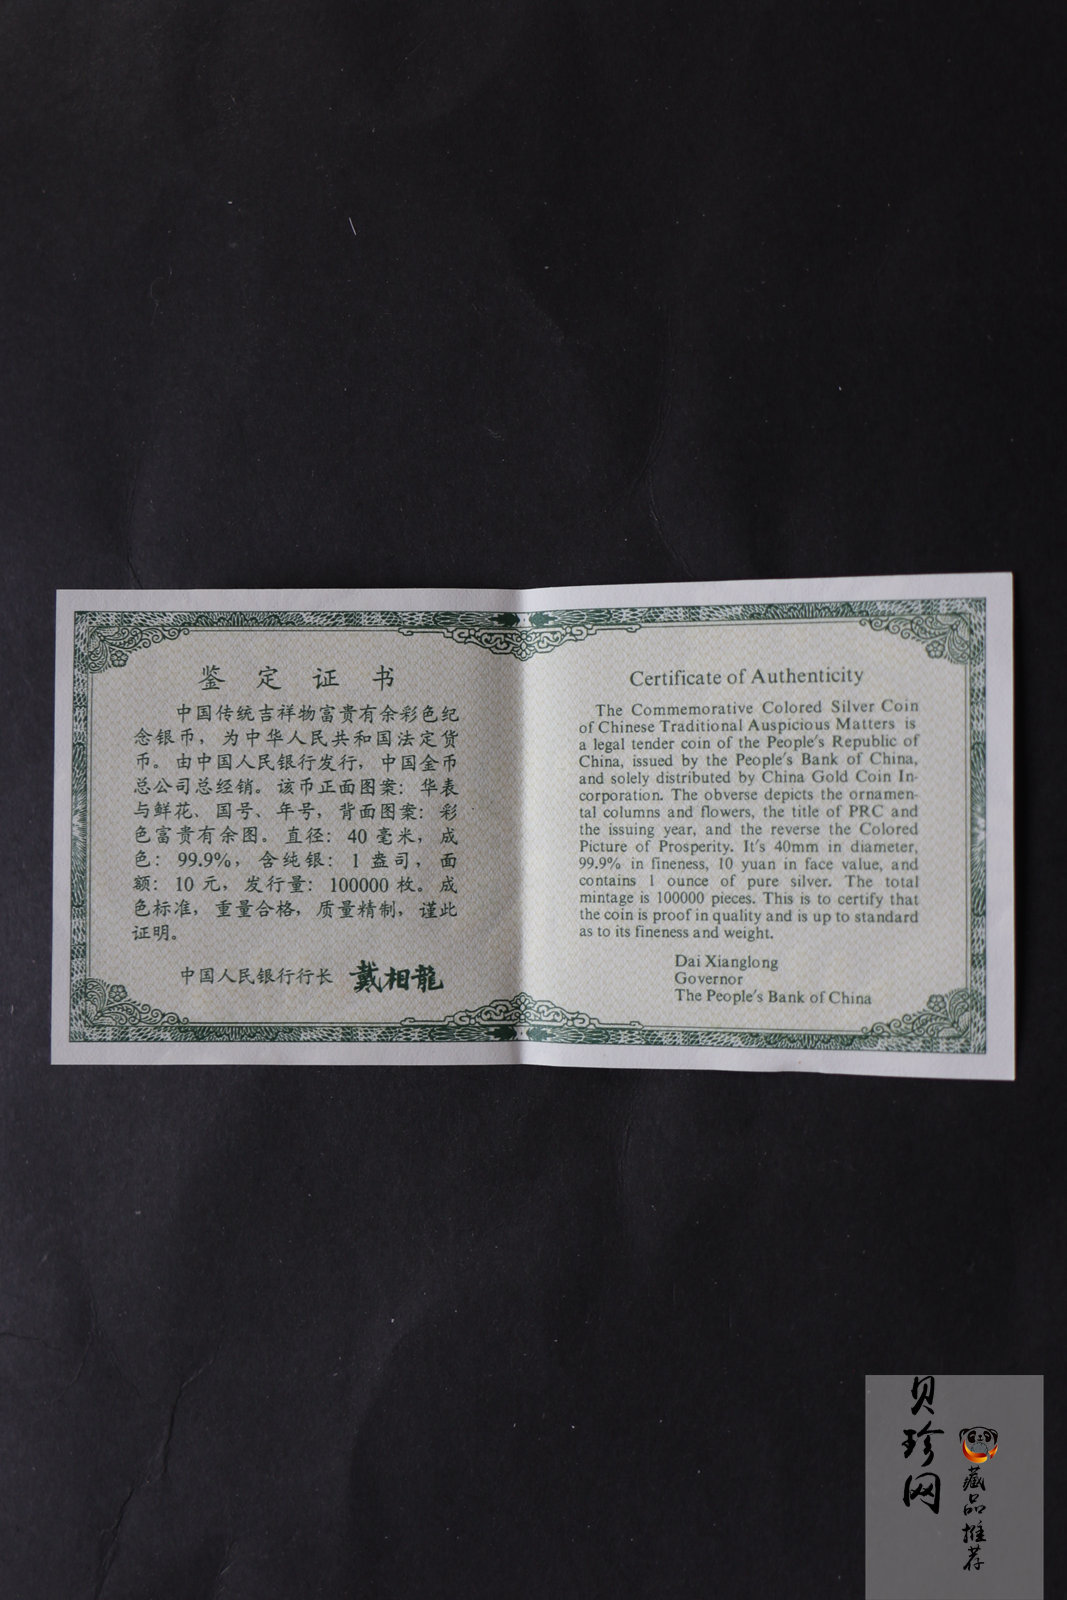 鉴定证书
中国传统吉祥物富贵有余彩色纪
念银币，为中华人民共和国法定货
币。由中国人民银行发行，中国金币
总公司总经销。该币正面图案：华表
与鲜花、国号、年号，背面图案：彩
色富贵有余图。直径：40毫米，成
色：99.9%，含纯银：1盎司，面
额：10元，发行量：100000枚。成
色标准，重量合格，质量精制，谨此
证明。
中国人民银行行长 戴相龍
Certificate of Authenticity
The Commemorative Colored Silver Coin
of Chinese Traditional Auspicious Matters is
a legal tender coin of the People's Republic of
China, issued by the People's Bank of China,
and solely distributed by China Gold Coin In-
corporation. The obverse depicts the ornamen-
tal columns and flowers, the title of PRC and
the issuing year, and the reverse the Colored
Picture of Prosperity. It's 40mm in diameter,
99.9% in fineness, 10 yuan in face value, and
contains 1 ounce of pure silver. The total
mintage is 100000 pieces. This is to certify that
the coin is proof in quality and is up to standard
as to its fineness and weight.
Dai Xianglong
Governor
The People's Bank of China
贝珍网
藏品推荐